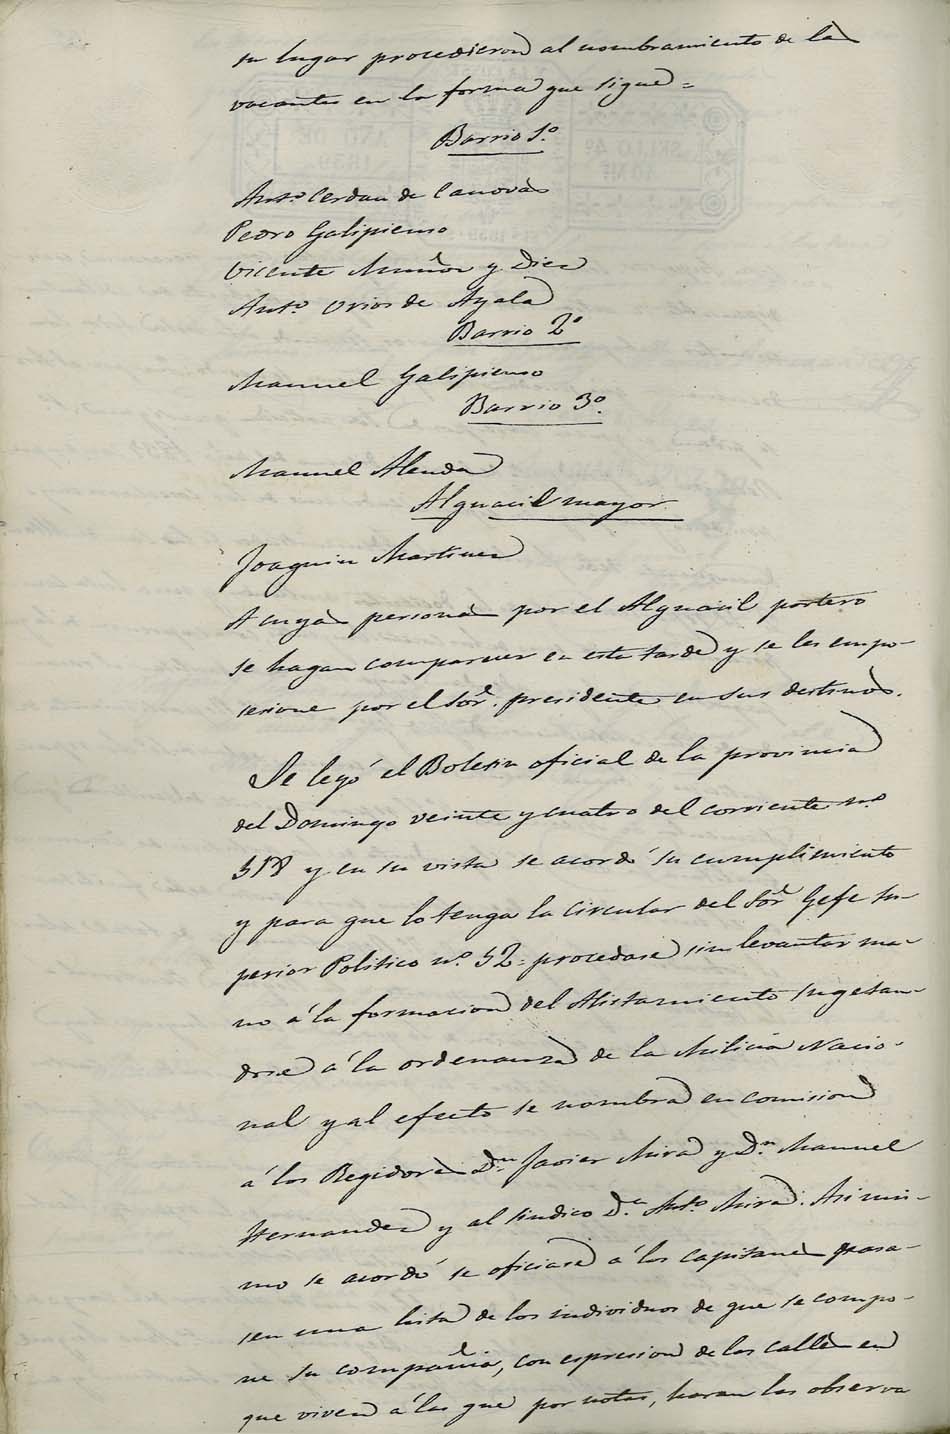 su lugar procedieron al nombramiento de las
vacantes en la forma que sigue =
Barrio 1.º
Antº Cerdan de Canovas
Pedro Galipienso
Vicente Muñoz y Diez
Antº Orios de Ayala
Barrio 2º
Manuel Galipienso
Barrio 3º.
Manuel Alenda
Alguacil mayor
Joaquin Martinez
A cuyas personas por el Alguacil portero
se hagan comparecer en esta tarde y se les empo-
sesione por el Sôr. presidente en sus destinos.
Se leyó el Boletin oficial de la provincia
del Domingo veinte y cuatro del corriente nº
y en su vista se acordó su cumplimiento
y para que lo tenga la Circular del Sôr Gefe Su-
perior Politico nº. 52 = procedase sin levantar ma-
no á la formacion del Alistamiento sugetan-
dose á la ordenanza de la Milicia Nacio-
nal y al efecto se nombra en comision
á los Regidores Dn Javier Mira y Dn Manuel
Hernandez y al sindico Dn Antº Mira. Asimis-
mo se acordó se oficiase á los capitanes pasa-
sen una lista de los individuos de que se compo-
ne su compañia, con espresion de las calles en
que viven á las que por notas, haran las observa